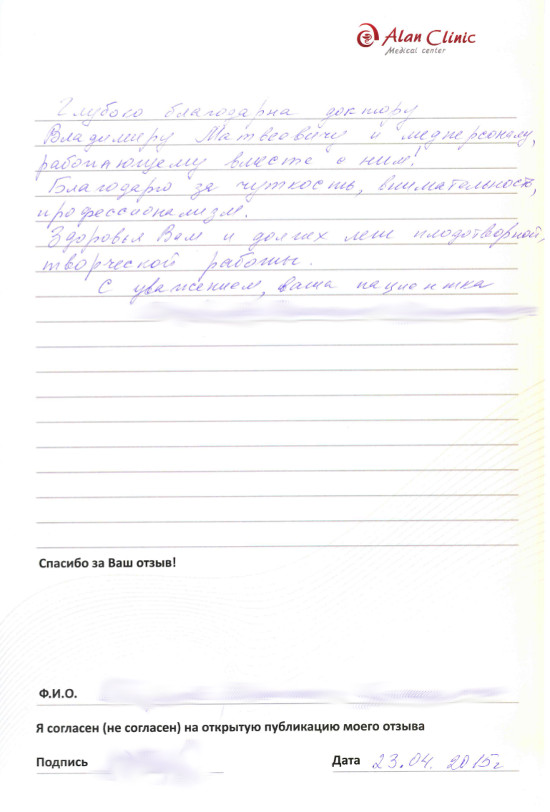 Alan Clinic
Medical center
Глубоко благодарна доктору
Владимиру Матвеевичу и медперсоналу,
работающему вместе с ним!
Благодарю за чуткость, внимательность,
профессионализм.
Здоровья Вам и долгих лет плодотворной,
творческой работы.
С уважением, ваша пациентка
Спасибо за Ваш отзыв!
Ф.И.О.
Я согласен (не согласен) на открытую публикацию моего отзыва
Подпись
Дата 23.04.2015г